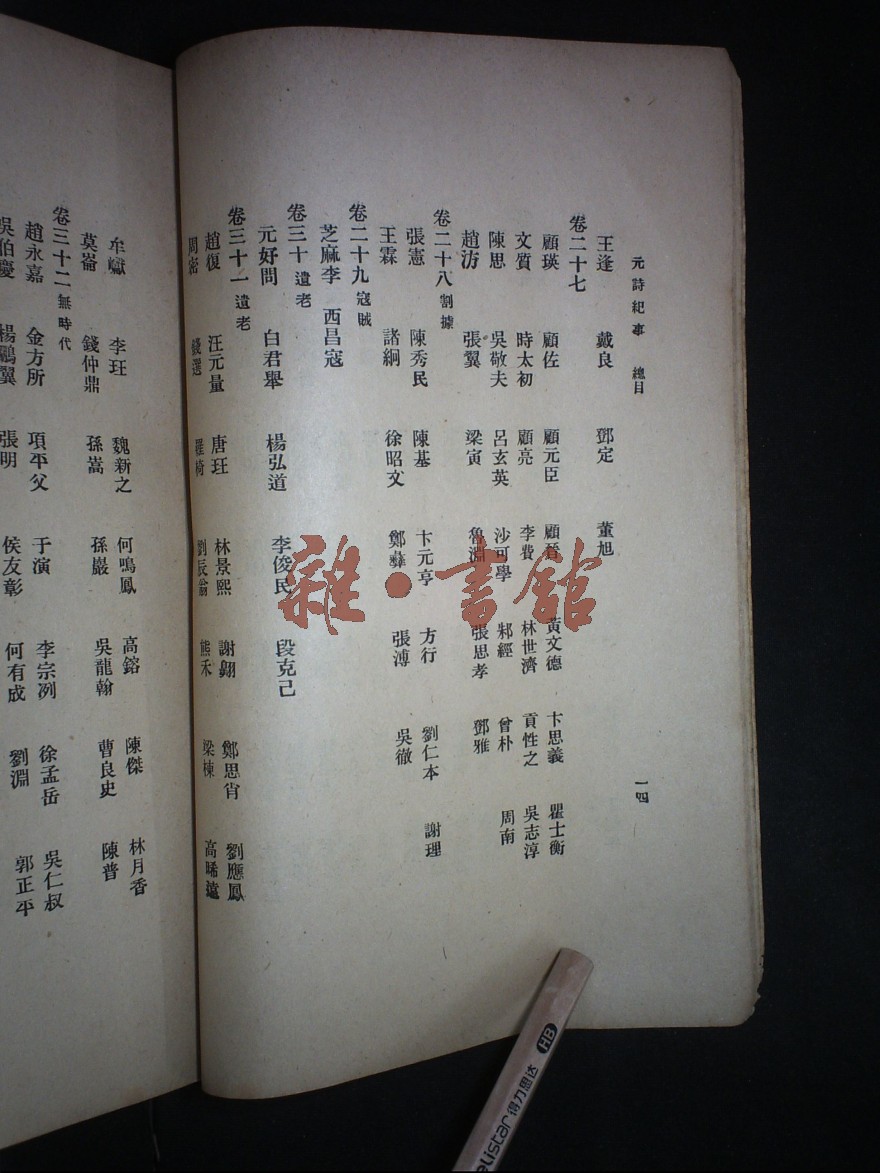 元詩紀事 總目 一四
王逢 戴良 鄧定 董旭
卷二十七
顧瑛 顧佐 顧元臣 顧晉 黃文德 卞思義 瞿士衡
文質 時太初 顧亮 李費 林世濟 貢性之 吳志淳
陳思 吳敬夫 呂玄英 沙可學 邾經 曾朴 周南
趙汸 張翼 梁寅 魯淵 張思孝 鄧雅
卷二十八 割據
張憲 陳秀民 陳基 卞元亨 方行 劉仁本 謝理
王霖 諸綱 徐昭文 鄭彝 張溥 吳徹
卷二十九 寇賊
芝麻李 西昌寇
卷三十 遺老
元好問 白君舉 楊弘道 李俊民 段克己
卷三十一 遺老
趙復 汪元量 唐珏 林景熙 謝翱 鄭思肖 劉應鳳
周密 錢選 羅椅 劉辰翁 熊禾 梁棟 高晞遠
牟巘 李玨 魏新之 何鳴鳳 高鎔 陳傑 林月香
莫崙 錢仲鼎 孫嵩 孫巖 吳龍翰 曹良史 陳普
卷三十二 無時代
趙永嘉 金方所 項平父 于演 李宗冽 徐孟岳 吳仁叔
吳伯慶 楊鵬翼 張明 侯友彰 何有成 劉淵 郭正平
雜·書館
elistar 得力思达 HB